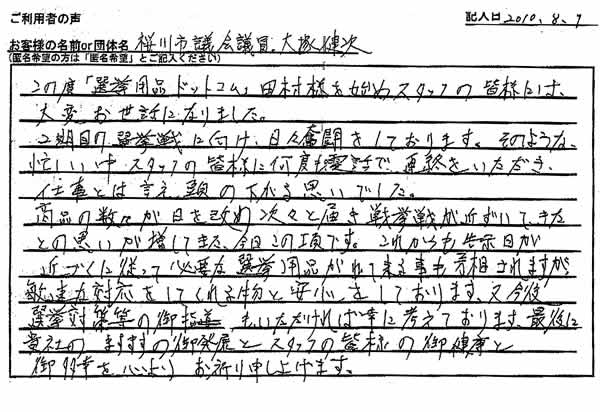 ご利用者の声
記入日 2010.8.9
お客様の名前or団体名 桜川市議会議員 大塚健次
(匿名希望の方は「匿名希望」とご記入ください)
この度「選挙用品ドットコム」田村様を始めスタッフの皆様には、
大変お世話になりました。
2期目の選挙戦に付け、日々奮闘をしております。そのような、
忙しい中スタッフの皆様に何度も電話で、連絡をいただき、
仕事とは言え、頭の下がる思いでした。
商品の数々が日を改め次々と届き戦挙戦が近ずいてきた
との思いが増してきた、今日この頃です。これからも告示日が
近づくに従って必要な選挙用品がれて来る事も予想されますが
敏速な対応をしてくれる物と安心をしております、又今後
選挙対策等の御指導もいただければ幸に考えております、最後に
貴社のますますの御発展とスタッフの皆様の御健康と
御多幸を心より お祈り申し上げます。